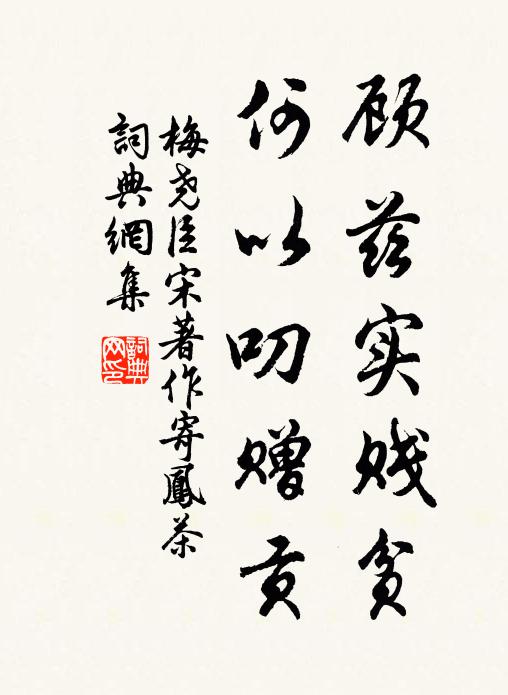 顾兹实贱贫
何以叨赠贡
梅尧臣宋著作寄鳳茶
詞典網集
詞典網印